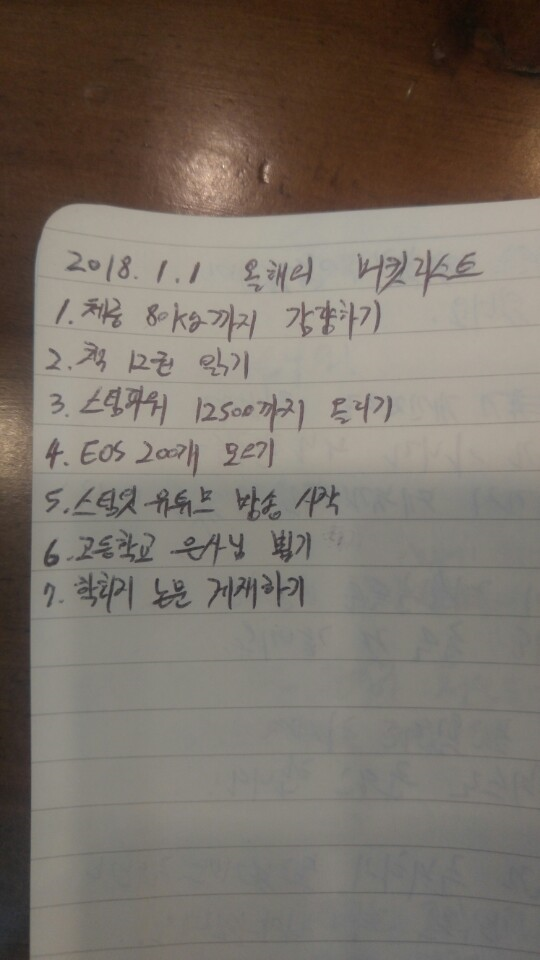 2018.1.1 올해의 버킷리스트
1. 체중 80kg까지 감량하기
2. 책 12권 읽기
3. 스팀파워 12500까지 올리기
4. EOS 200개 모으기
5. 스팀잇 유튜브 방송 시작
6. 고등학교 은사님 뵙기
7. 학회지 논문 게재하기